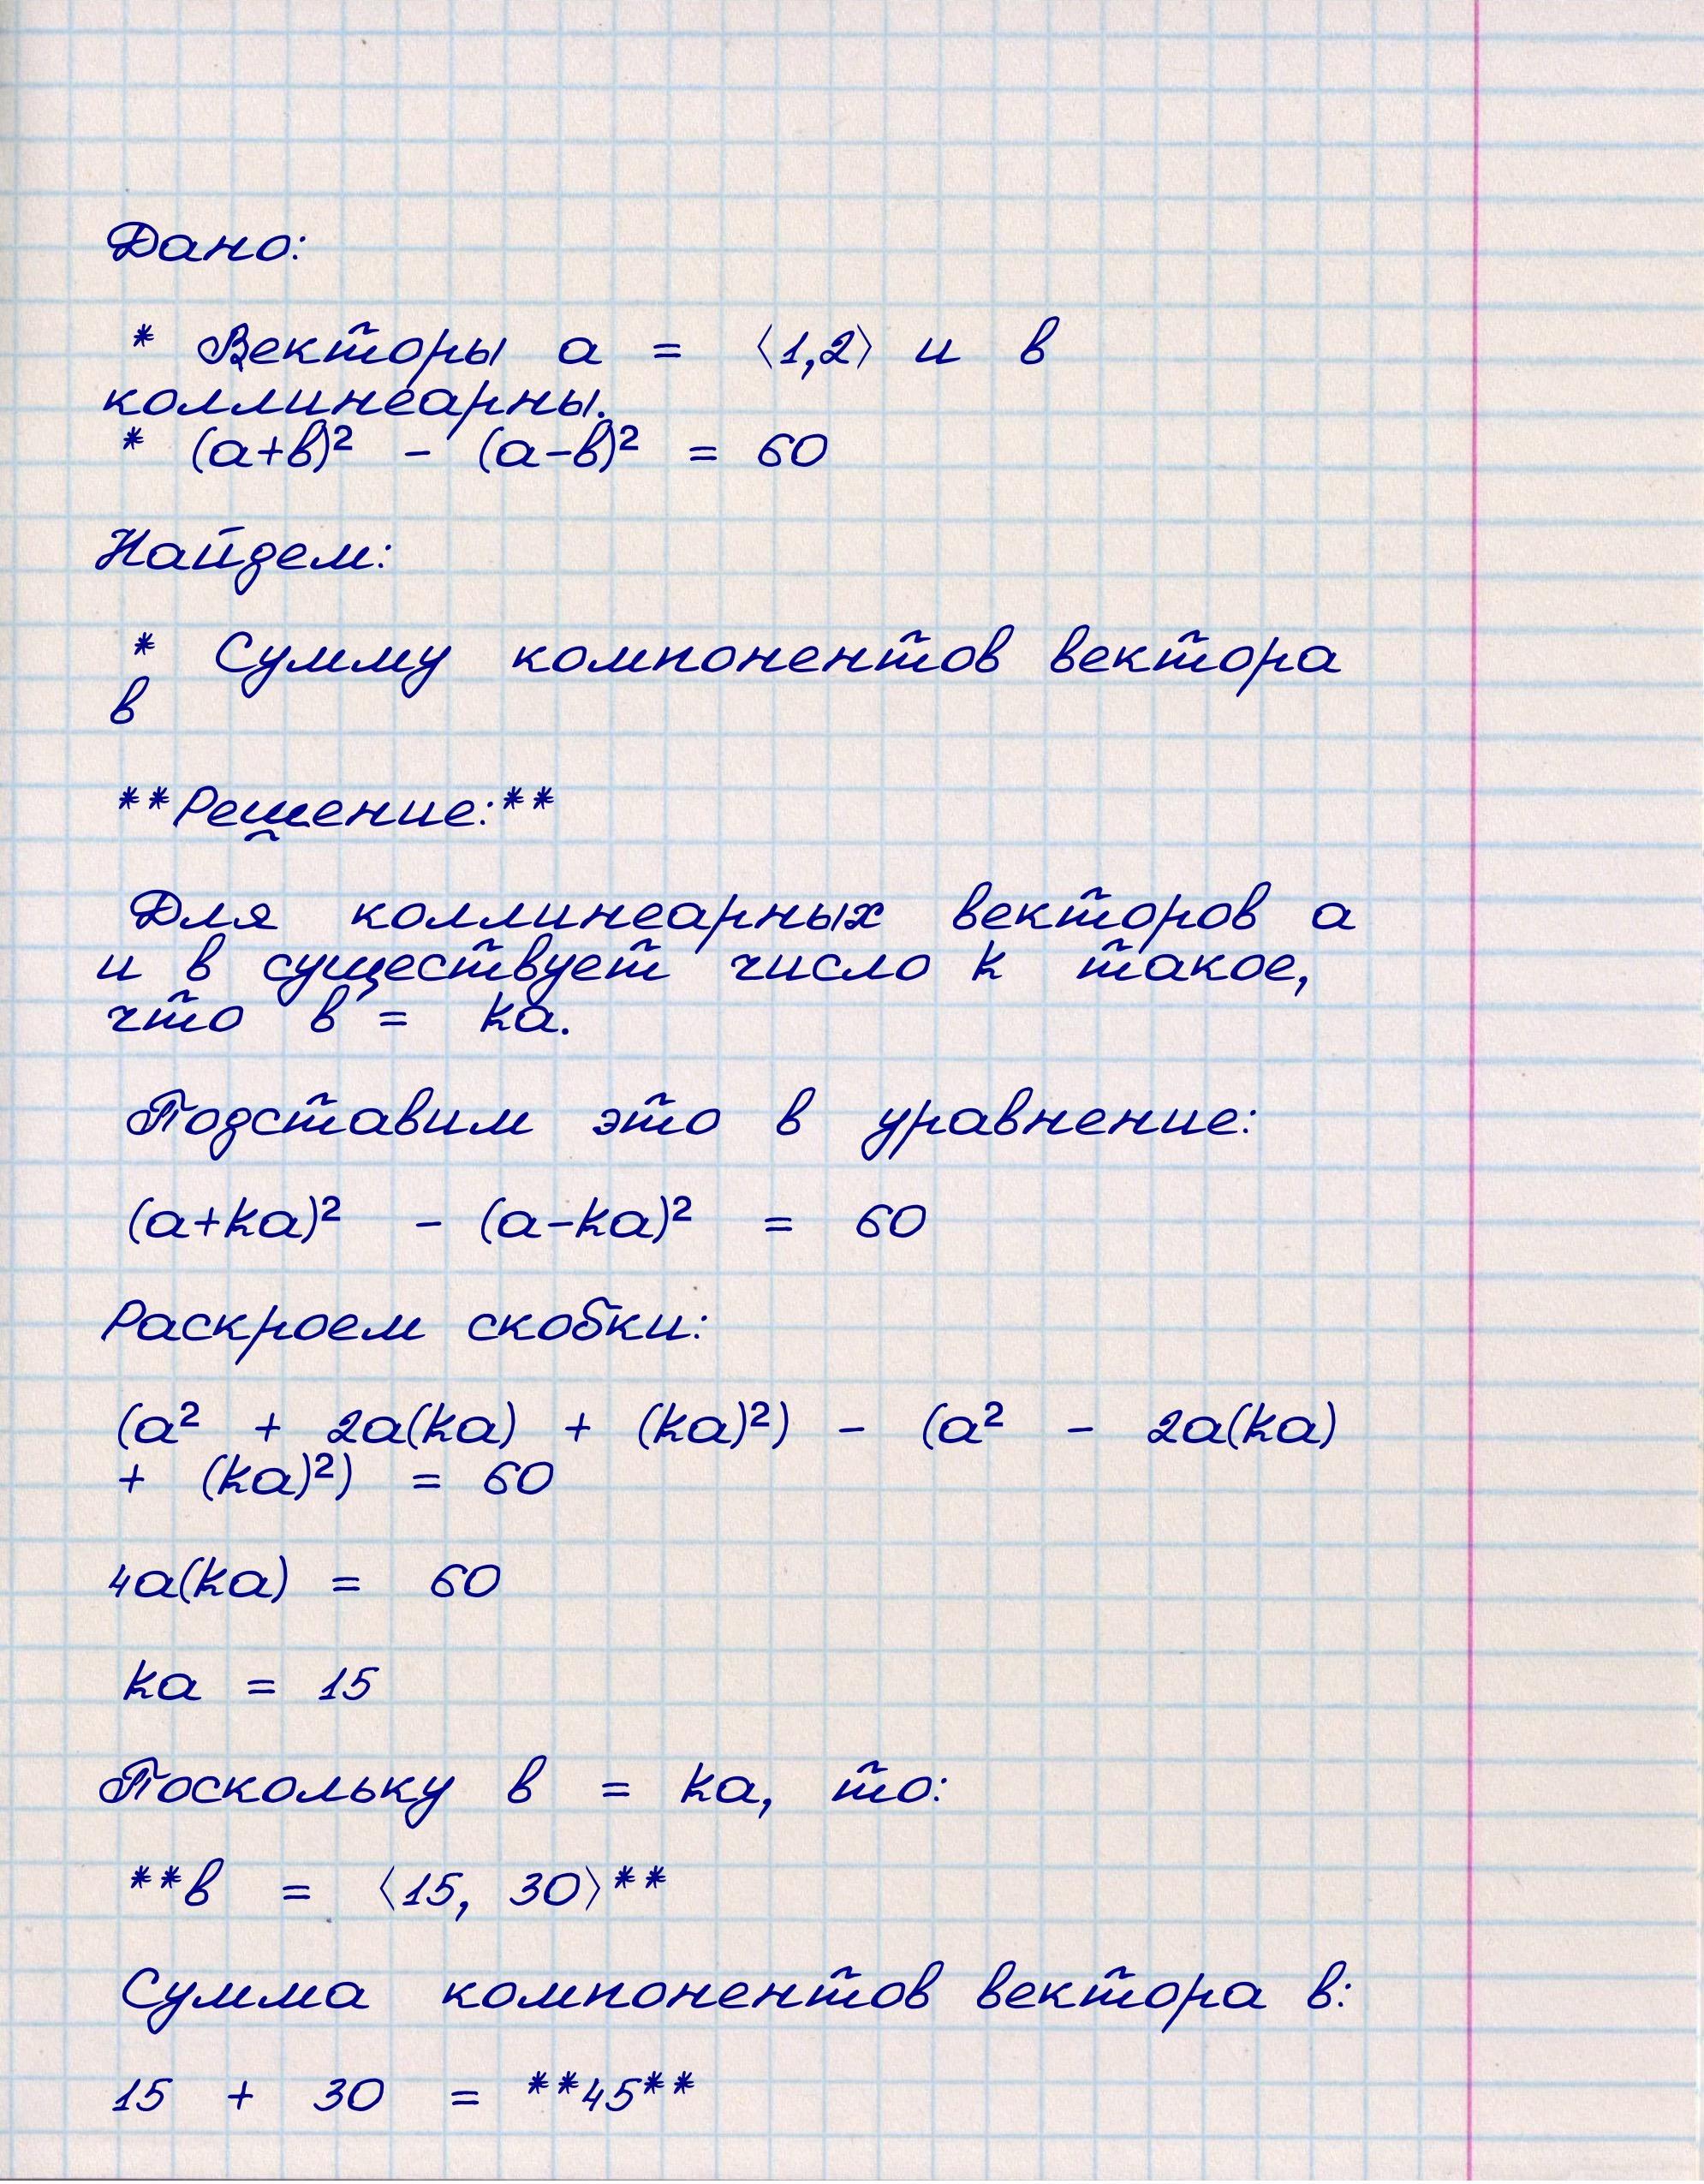 Дано:
* Векторы а = ⟨1,2⟩ и в
коллинеарны.
* (а+в)² - (а-в)² = 60
Найдем:
* Сумму компонентов вектора
в
**Решение:**
Для коллинеарных векторов а
и в существует число k такое,
что в = kа.
Подставим это в уравнение:
(а+kа)² - (а-kа)² = 60
Раскроем скобки:
(а² + 2а(kа) + (kа)²) - (а² - 2а(kа)
+ (kа)²) = 60
4а(kа) = 60
kа = 15
Поскольку в = kа, то:
**в = ⟨15, 30⟩**
Сумма компонентов вектора в:
15 + 30 = **45**